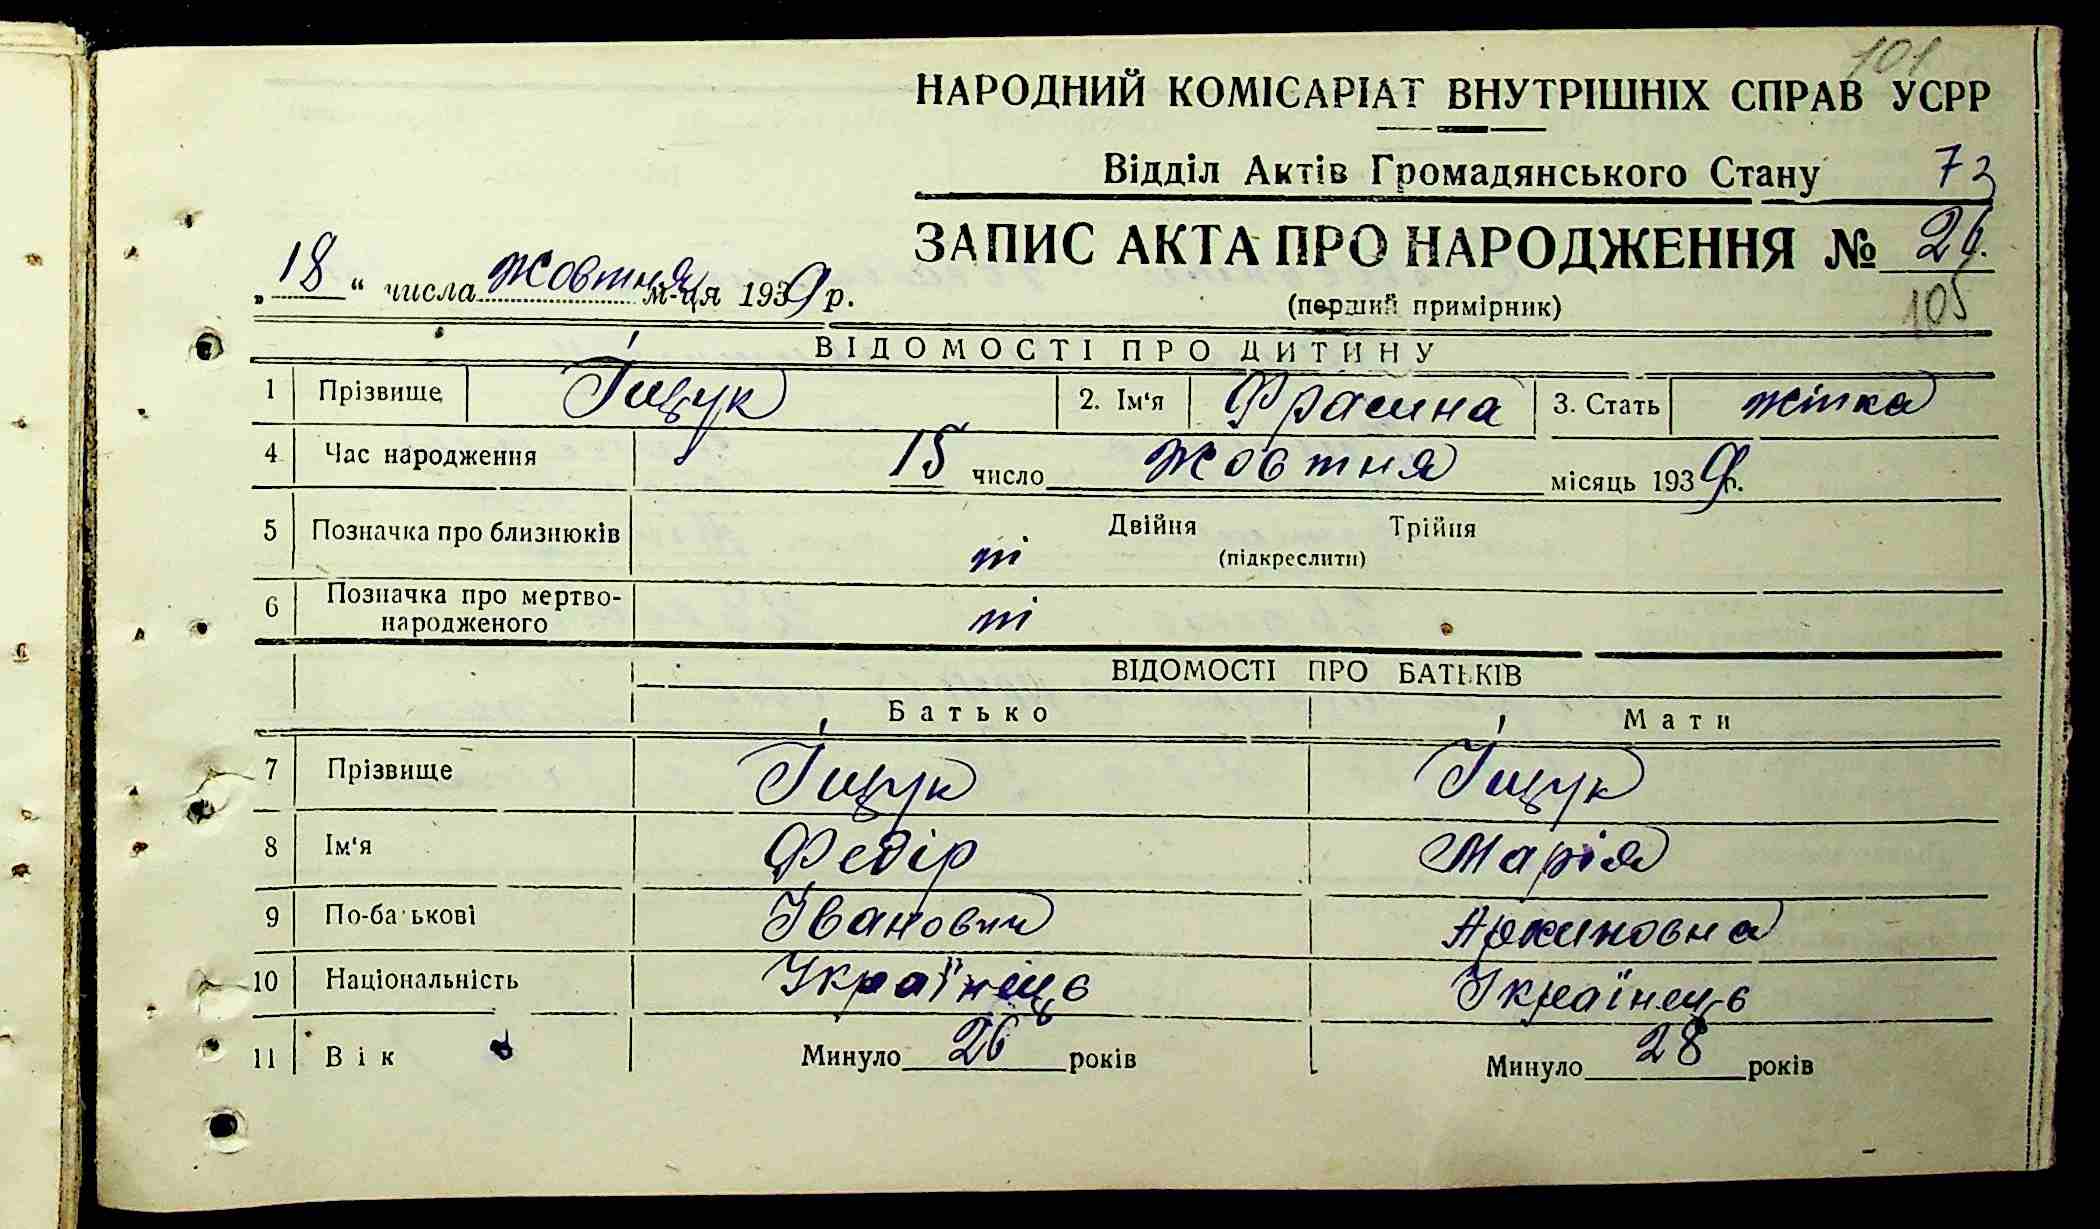 101
НАРОДНИЙ КОМІСАРІАТ ВНУТРІШНІХ СПРАВ УСРР
Відділ Актів Громадянського Стану 73
ЗАПИС АКТА ПРО НАРОДЖЕННЯ №
„18“ числа Жовтня м-ця 1939 р.
(перший примірник) 105
ВІДОМОСТІ ПРО ДИТИНУ
1 Прізвище Іщук 2. Ім'я 3. Стать жінка
4 Час народження 15 число Жовтня місяць 1939 р.
5 Позначка про близнюків ні Двійня Трійня
(підкреслити)
6 Позначка про мертво-
народженого ні
ВІДОМОСТІ ПРО БАТЬКІВ
Батько Мати
7 Прізвище Іщук Іщук
8 Ім'я Федір Марія
9 По-батькові Іванович
10 Національність Українець Українець
11 Вік Минуло 26 років Минуло 28 років